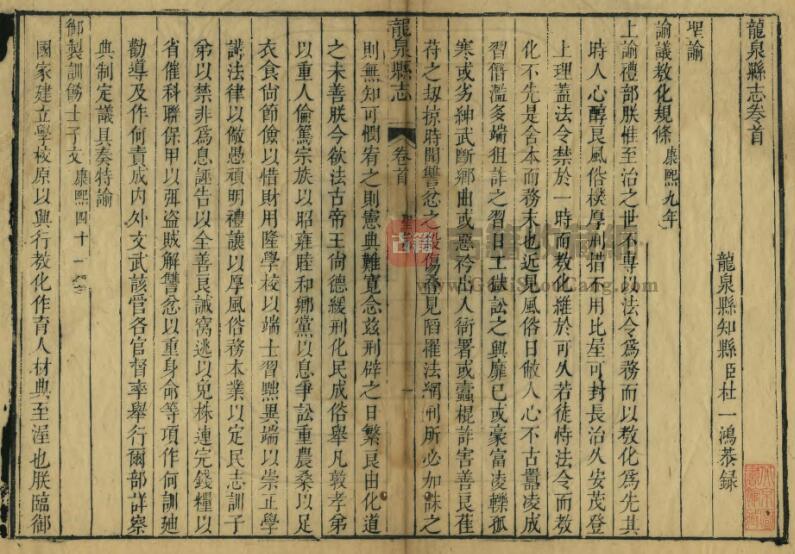 龍泉縣志卷首
龍泉縣知縣臣杜一鴻恭錄
聖諭
諭議教化規條 康熙九年
上諭禮部朕惟至治之世不專以法令為務而以教化為先其
時人心醇良風俗樸厚刑措不用比屋可封長治久安茂登
上理蓋法令禁於一時而教化維於可久若徒恃法令而教
化不先是舍本而務末也近見風俗日敝人心不古嚚凌成
習僭濫多端狙詐之習日工獄訟之興靡已或豪富凌轢孤
寒或劣紳武斷鄉曲或惡衿出入衙署或蠹棍詐害善良萑
苻之刼掠時聞讐忿之殺傷叠見陷罹法網刑所必加誅之
龍泉縣志
卷首
聖諭
一
則無知可憫宥之則憲典難寬念茲刑辟之日繁良由化道
之未善朕今欲法古帝王尚德緩刑化民成俗舉凡敦孝弟
以重人倫篤宗族以昭雍睦和鄉黨以息爭訟重農桑以足
衣食尚節儉以惜財用隆學校以端士習黜異端以崇正學
講法律以儆愚頑明禮讓以厚風俗務本業以定民志訓子
弟以禁非為息誣告以全善良誡窩逃以免株連完錢糧以
省催科聯保甲以弭盜賊解讐忿以重身命等項作何訓廸
勸導及作何責成內外文武該管各官督率舉行爾部詳察
典制定議具奏特諭
御製訓飭士子文 康熙四十一年
國家建立學校原以興行教化作育人材典至渥也朕臨御
古籍
www.GujiShuCang.com